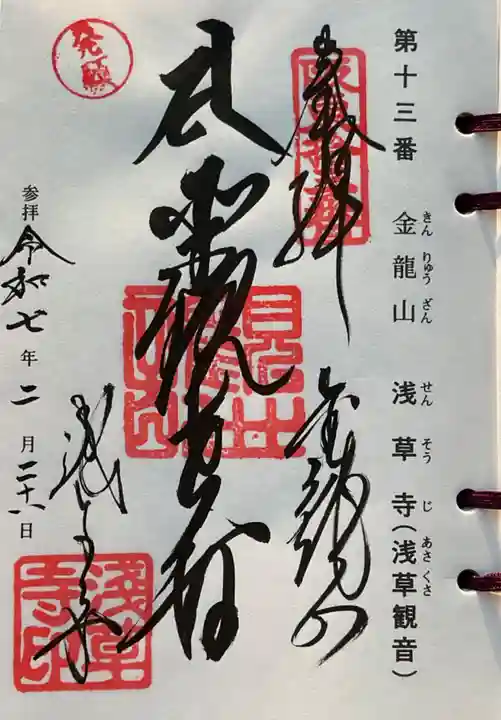 第十三番 金龍山 浅草寺(浅草観音)
きん りゅう ざん せん そう じ あさ くさ
奉拝
金龍山
浅草寺
参拝 令和七年二月二十八日
発願
浅草寺印